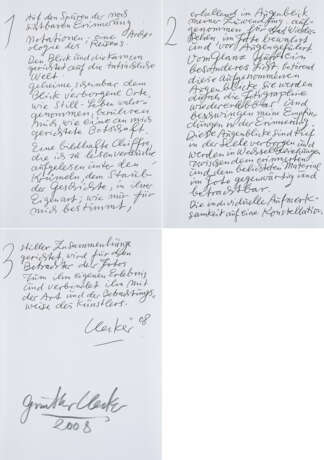 1
Auf den Spuren der
sichtbaren Erinnerung
Notationen - eine Archäo-
logie des Reisens
Den Blick und die Kamera
gerichtet auf die entrissene
Welt.
Geheime sichtbar dem
Blick verborgene Orte,
wie Still-Leben wahr-
genommen, berühren
mich wie eine an mich
gerichtete Botschaft.
Eine bildhafte Chiffre,
die ich
aufgelesen unter den
Krümeln dem Staub
der Geschichte, in ihrer
Eigenart, wie nur für
mich bestimmt,
2
erhellung im Augenblick
meiner Zuwendung, auf-
genommen für das Wieder-
sehen, im Foto bewahrt
und vor Augen geführt
vom Glanz
besonderes Licht
diese aufgenommenen
Augenblicke sie werden
durch die Fotographie
wiedererlebbar und
beschwingen meine Empfin-
dungen in der Erinnerung.
Diese Augenblicke sind tief
in der Seele verborgen und
werden in Wechselbeziehungen
zwischen dem erinnerten
und dem belichteten Material
im Foto gegenwärtig und
betrachtbar.
Die individuelle Aufmerk-
samkeit auf eine Konstellation
3
stiller Zusammenhänge
gerichtet wird für den
Betrachter der Fotos
zum ihm eigenen Erlebnis
und verbindet ihn mit
der Art und der Betrachtungs
weise des Künstlers.
Uecker 08
Günther Uecker
2008